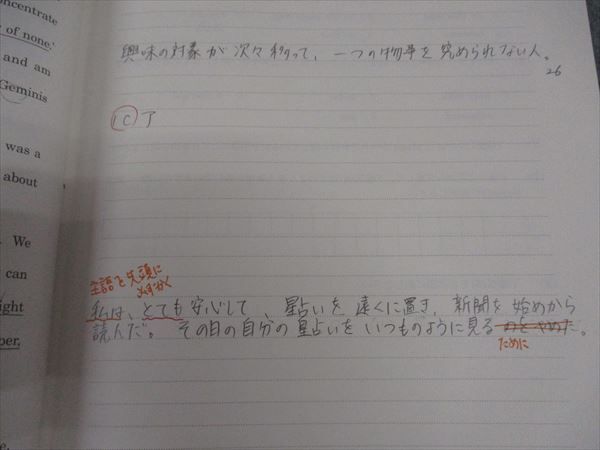 of none.'
and am
Geminis
was a
about
We
can
興味の対象が次々移って、一つの物事を究められない人。
26
(c) ア
主語を先頭に
必ずかく
私は、とても安心して、星占いを遠くに置き、新聞を始めから
読んだ。その日の自分の星占いをいつものように見るのをやめた。
ために